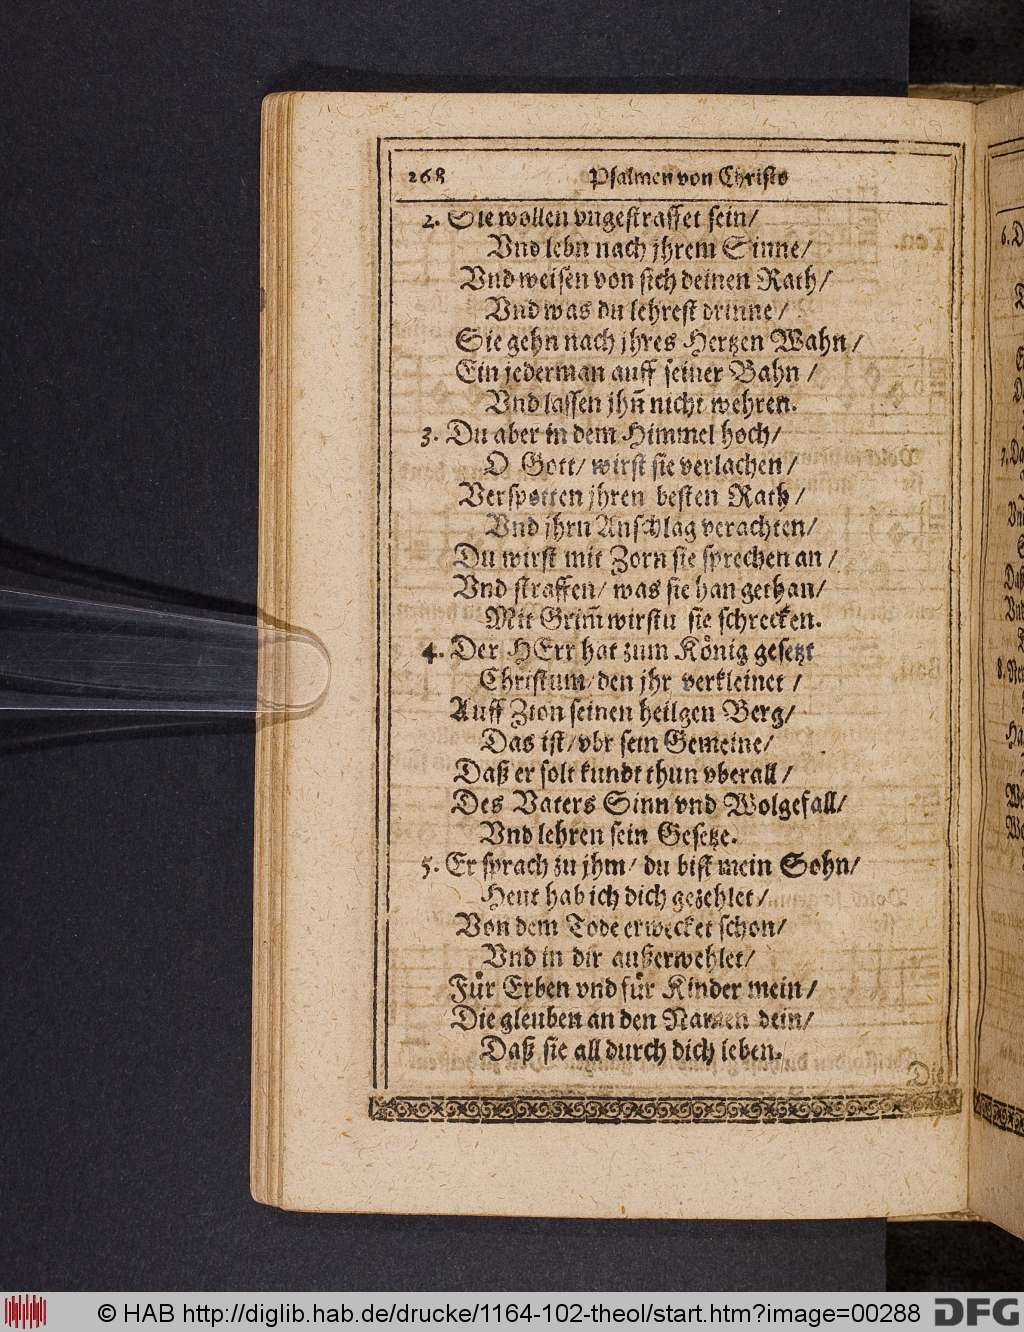 268 Psalmen von Christo
2. Sie wollen vngestraffet sein/
Vnd lebn nach jhrem Sinne/
Vnd weisen von sich deinen Rath/
Vnd was du lehrest drinne/
Sie gehn nach jhres Hertzen Wahn/
Ein jederman auff seiner Bahn/
Vnd lassen jhn̄ nicht wehren.
3. Du aber in dem Himmel hoch/
O Gott/ wirst sie verlachen/
Verspotten jhren besten Rath/
Vnd jhrn Anschlag verachten/
Du wirst mit Zorn sie sprechen an/
Vnd straffen/ was sie han gethan/
Mit Grim̄ wirstu sie schrecken.
4. Der HErr hat zum König gesetzt
Christum/ den jhr verkleinet/
Auff Zion seinen heilgen Berg/
Das ist/ vbr sein Gemeine/
Daß er solt kundt thun vberall/
Des Vaters Sinn vnd Wolgefall/
Vnd lehren sein Gesetze.
5. Er sprach zu jhm/ du bist mein Sohn/
Heut hab ich dich gezehlet/
Von dem Tode erwecket schon/
Vnd in dir außerwehlet/
Für Erben vnd für Kinder mein/
Die gleuben an den Namen dein/
Daß sie all durch dich leben.
Die
© HAB http://diglib.hab.de/drucke/1164-102-theol/start.htm?image=00288 DFG